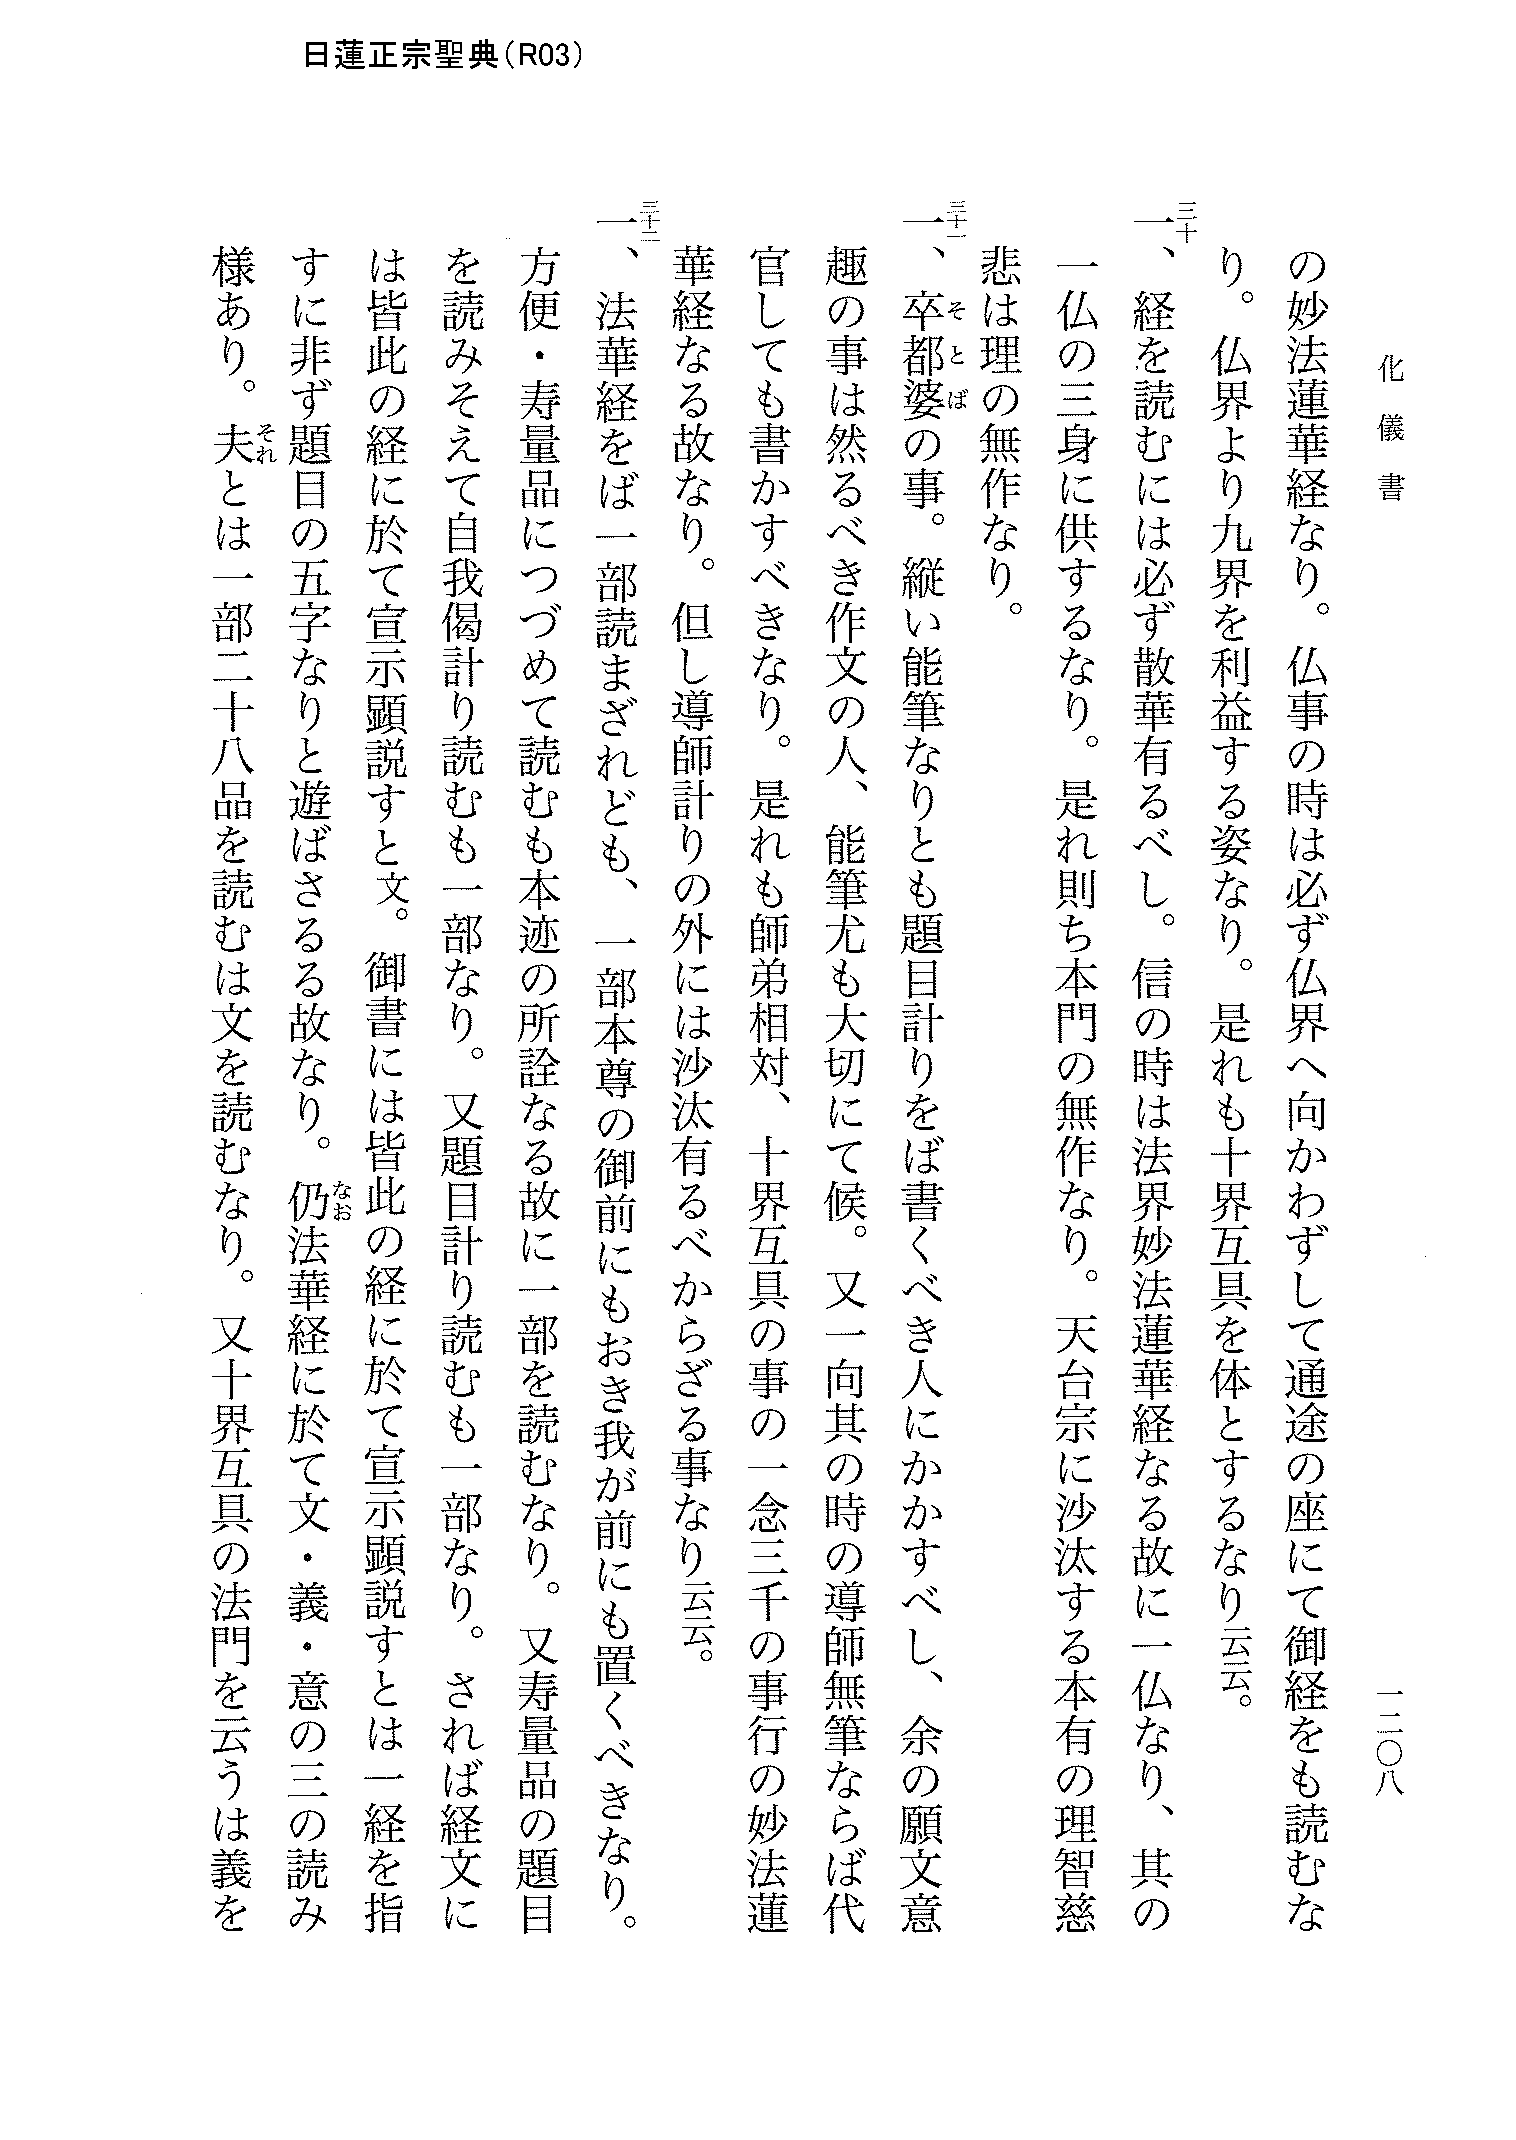 日蓮正宗聖典（R03）
化儀書
一二〇八
の妙法蓮華経なり。仏事の時は必ず仏界へ向かわずして通途の座にて御経をも読むな
り。仏界より九界を利益する姿なり。是れも十界互具を体とするなり云云。
三十
一、経を読むには必ず散華有るべし。信の時は法界妙法蓮華経なる故に一仏なり、其の
一仏の三身に供するなり。是れ則ち本門の無作なり。天台宗に沙汰する本有の理智慈
悲は理の無作なり。
三十一
一、卒都婆の事。縦い能筆なりとも題目計りをば書くべき人にかかすべし、余の願文意
そとば
趣の事は然るべき作文の人、能筆尤も大切にて候。又一向其の時の導師無筆ならば代
官しても書かすべきなり。是れも師弟相対、十界互具の事の一念三千の事行の妙法蓮
華経なる故なり。但し導師計りの外には沙汰有るべからざる事なり云云。
三十二
一、法華経をば一部読まざれども、一部本尊の御前にもおき我が前にも置くべきなり。
方便・寿量品につづめて読むも本迹の所詮なる故に一部を読むなり。又寿量品の題目
を読みそえて自我偈計り読むも一部なり。又題目計り読むも一部なり。されば経文に
は皆此の経に於て宣示顕説すと文。御書には皆此の経に於て宣示顕説すとは一経を指
すに非ず題目の五字なりと遊ばさるる故なり。仍法華経に於て文・義・意の三の読み
なお
様あり。夫とは一部二十八品を読むは文を読むなり。又十界互具の法門を云うは義を
それ